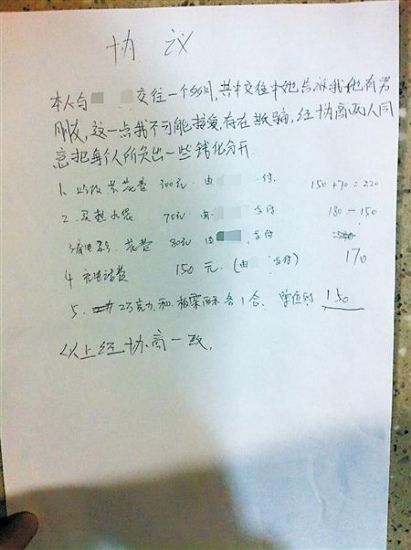 协 议
本人与 交往一个多月,其中交往中她告诉我他有男
朋友,这一点我不可能接受,存在欺骗,经协商两人同
意把每个人所先出一些钱化分开.
1. 花费 300元 由 付 150+70=220
2. 买热水袋 70元 由 支付 180-150
3. 花费 80元 由 支付
4. 充电话费 150元.(由 支付) 170
5. 巧克力和 苹果 各1合. 150
以上经协商一致.